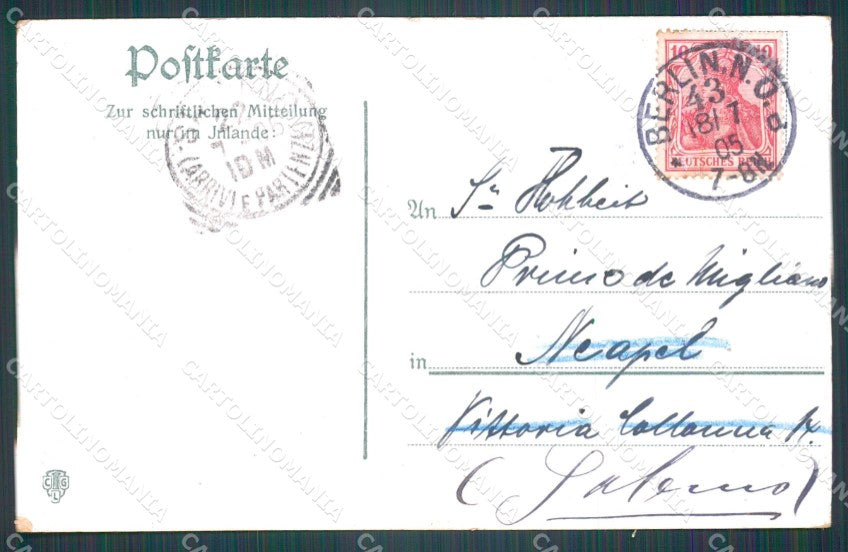 Postkarte
Zur schriftlichen Mitteilung
nur im Inlande:
(ARRIVI E PARTENZE)
10 M
10 10
DEUTSCHES REICH
BERLIN. N.O. d
43
18 7
05
7-8N
*
An Sr Hohheit
Principe de Migliano
in Neapel
Vittoria Collonna 14.
(Salerno)
C G
L
CARTOLINOMANIA